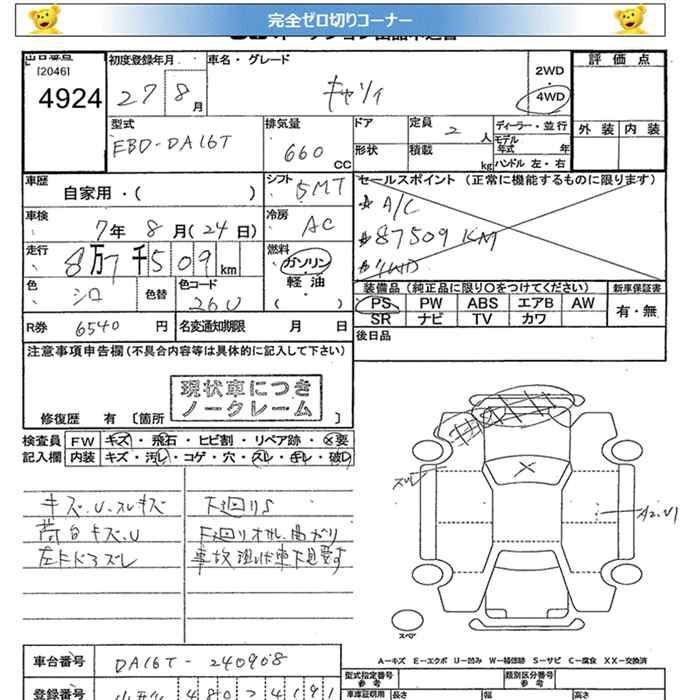 完全ゼロ切りコーナー
出品番号 初度登録年月 車名・グレード 評価点
[2046] 2WD
4924 27 8月 キャリィ 4WD
型式 排気量 ドア 定員 2人 ディーラー・並行 外装 内装
EBD-DA16T 660 CC 形状 積載 kg モデル年式 年
ハンドル 左・右
車歴 シフト セールスポイント (正常に機能するものに限ります)
自家用・( ) 5MT A/C
車検 冷房 87509 KM
7年 8月(24日) AC 4WD
走行 燃料
8万7千509km ガソリン・軽油
色 色替 色コード ( )
シロ 26U
装備品 (純正品に限り○をつけてください) 新車保証書
PS PW ABS エアB AW 有・無
SR ナビ TV カワ
R券 6540円 名変通知期限 月 日 後日品
注意事項申告欄(不具合内容等は具体的に記入して下さい)
現状車につき
ノークレーム
修復歴 有 [箇所 ]
検査員 FW キズ・飛石・ヒビ割・リペア跡・×要
記入欄 内装 キズ・汚レ・コゲ・穴・スレ・キレ・破レ
キズ.U.スレキズ 下廻りS
荷台キズ.U 下廻りオサレ.曲がり
左ドアスレ 事故現状車下見要す
スレ
A2.U1
スペア
A-キズ E-エクボ U-凹み W-補修跡 S-サビ C-腐食 XX-交換済
車台番号 DA16T-240908
型式指定番号 参考 類別区分番号 参考
登録番号 480 ... 4191
車庫証明用 長さ 幅 高さ